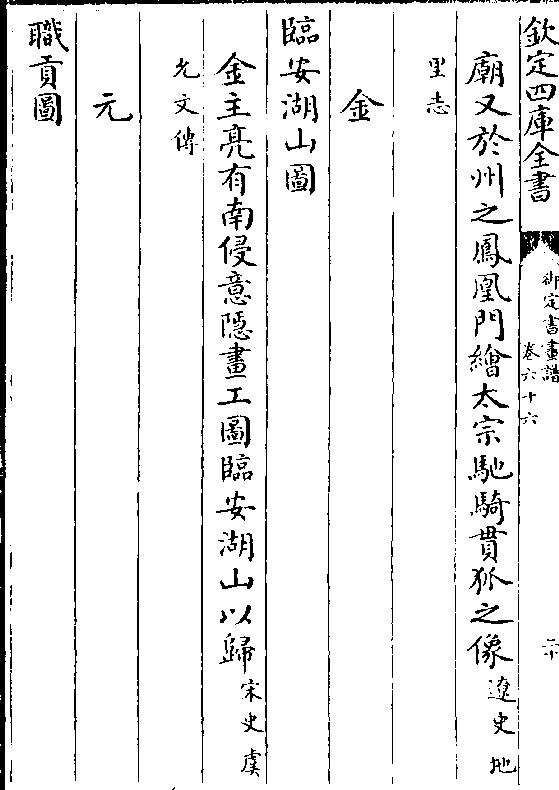 欽定四庫全書
御定書畫譜
卷六十六
二十
廟又於州之鳳凰門繪太宗馳騎貫狐之像遼史地
里志
金
臨安湖山圖
金主亮有南侵意隱畫工圖臨安湖山以歸宋史虞
允文傳
元
職貢圖